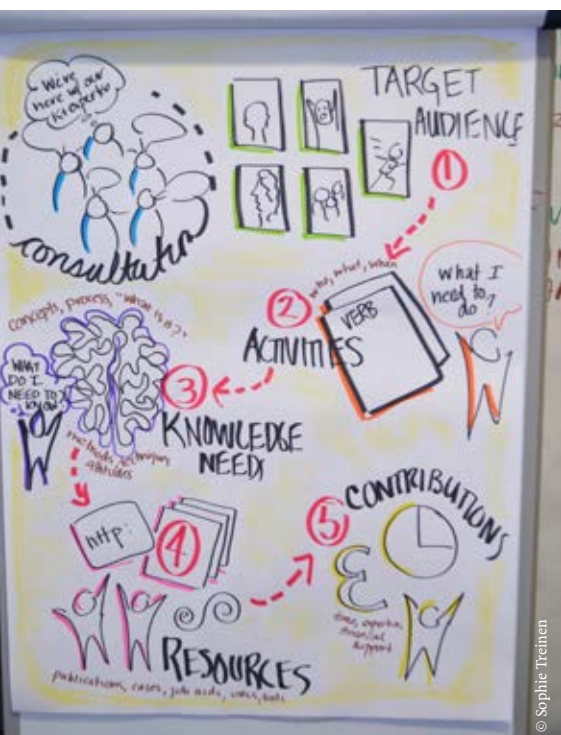 We're
here w/ our
consultation
TARGET
AUDIENCE
1
who, what, when
2
VERB
ACTIVITIES
What I
need to
do?
concepts, process, "what is it?"
WHAT
DO I
NEED TO
know?
3
KNOWLEDGE
NEED
methods, techniques,
attitudes
http:
4
RESOURCES
publications, cases, job aids,
5
CONTRIBUTIONS
time, expertise,
financial
support
© Sophie Treinen